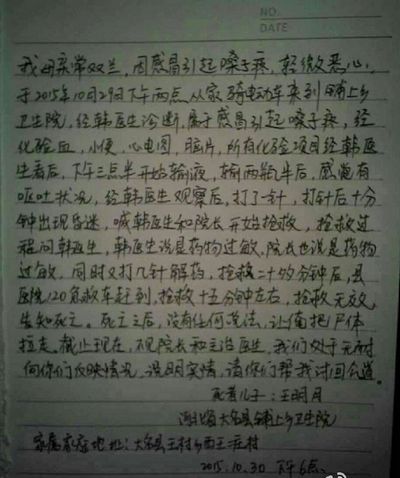 NO.
DATE
我母亲常双兰，因感冒引起嗓子疼，轻微恶心，
于2015年10月29日下午两点从家骑电动车来到铺上乡
卫生院，经韩医生诊断，属于感冒引起嗓子疼，经
化验血，小便，心电图，胸片，所有化验项目经韩医
生看后，下午三点半开始输液，输两瓶半后，感觉有
呕吐状况，经韩医生观察后，打了一针，打针后十分
钟出现昏迷，喊韩医生和院长开始抢救，抢救过
程问韩医生，韩医生说是药物过敏，院长也说是药物
过敏，同时又打几针解药，抢救二十多分钟后，县
医院120急救车赶到，抢救十五分钟左右，抢救无效，
告知死亡。死亡之后，没有任何说法，让俺把尸体
拉走。截止现在，不见院长和主治医生，我们处于无奈
向你们反映情况，说明实情，请你们帮我讨回公道。
死者儿子：王明月
河北省大名县铺上乡卫生院
家属家庭地址：大名县王村乡西王庄村
2015.10.30 下午6点